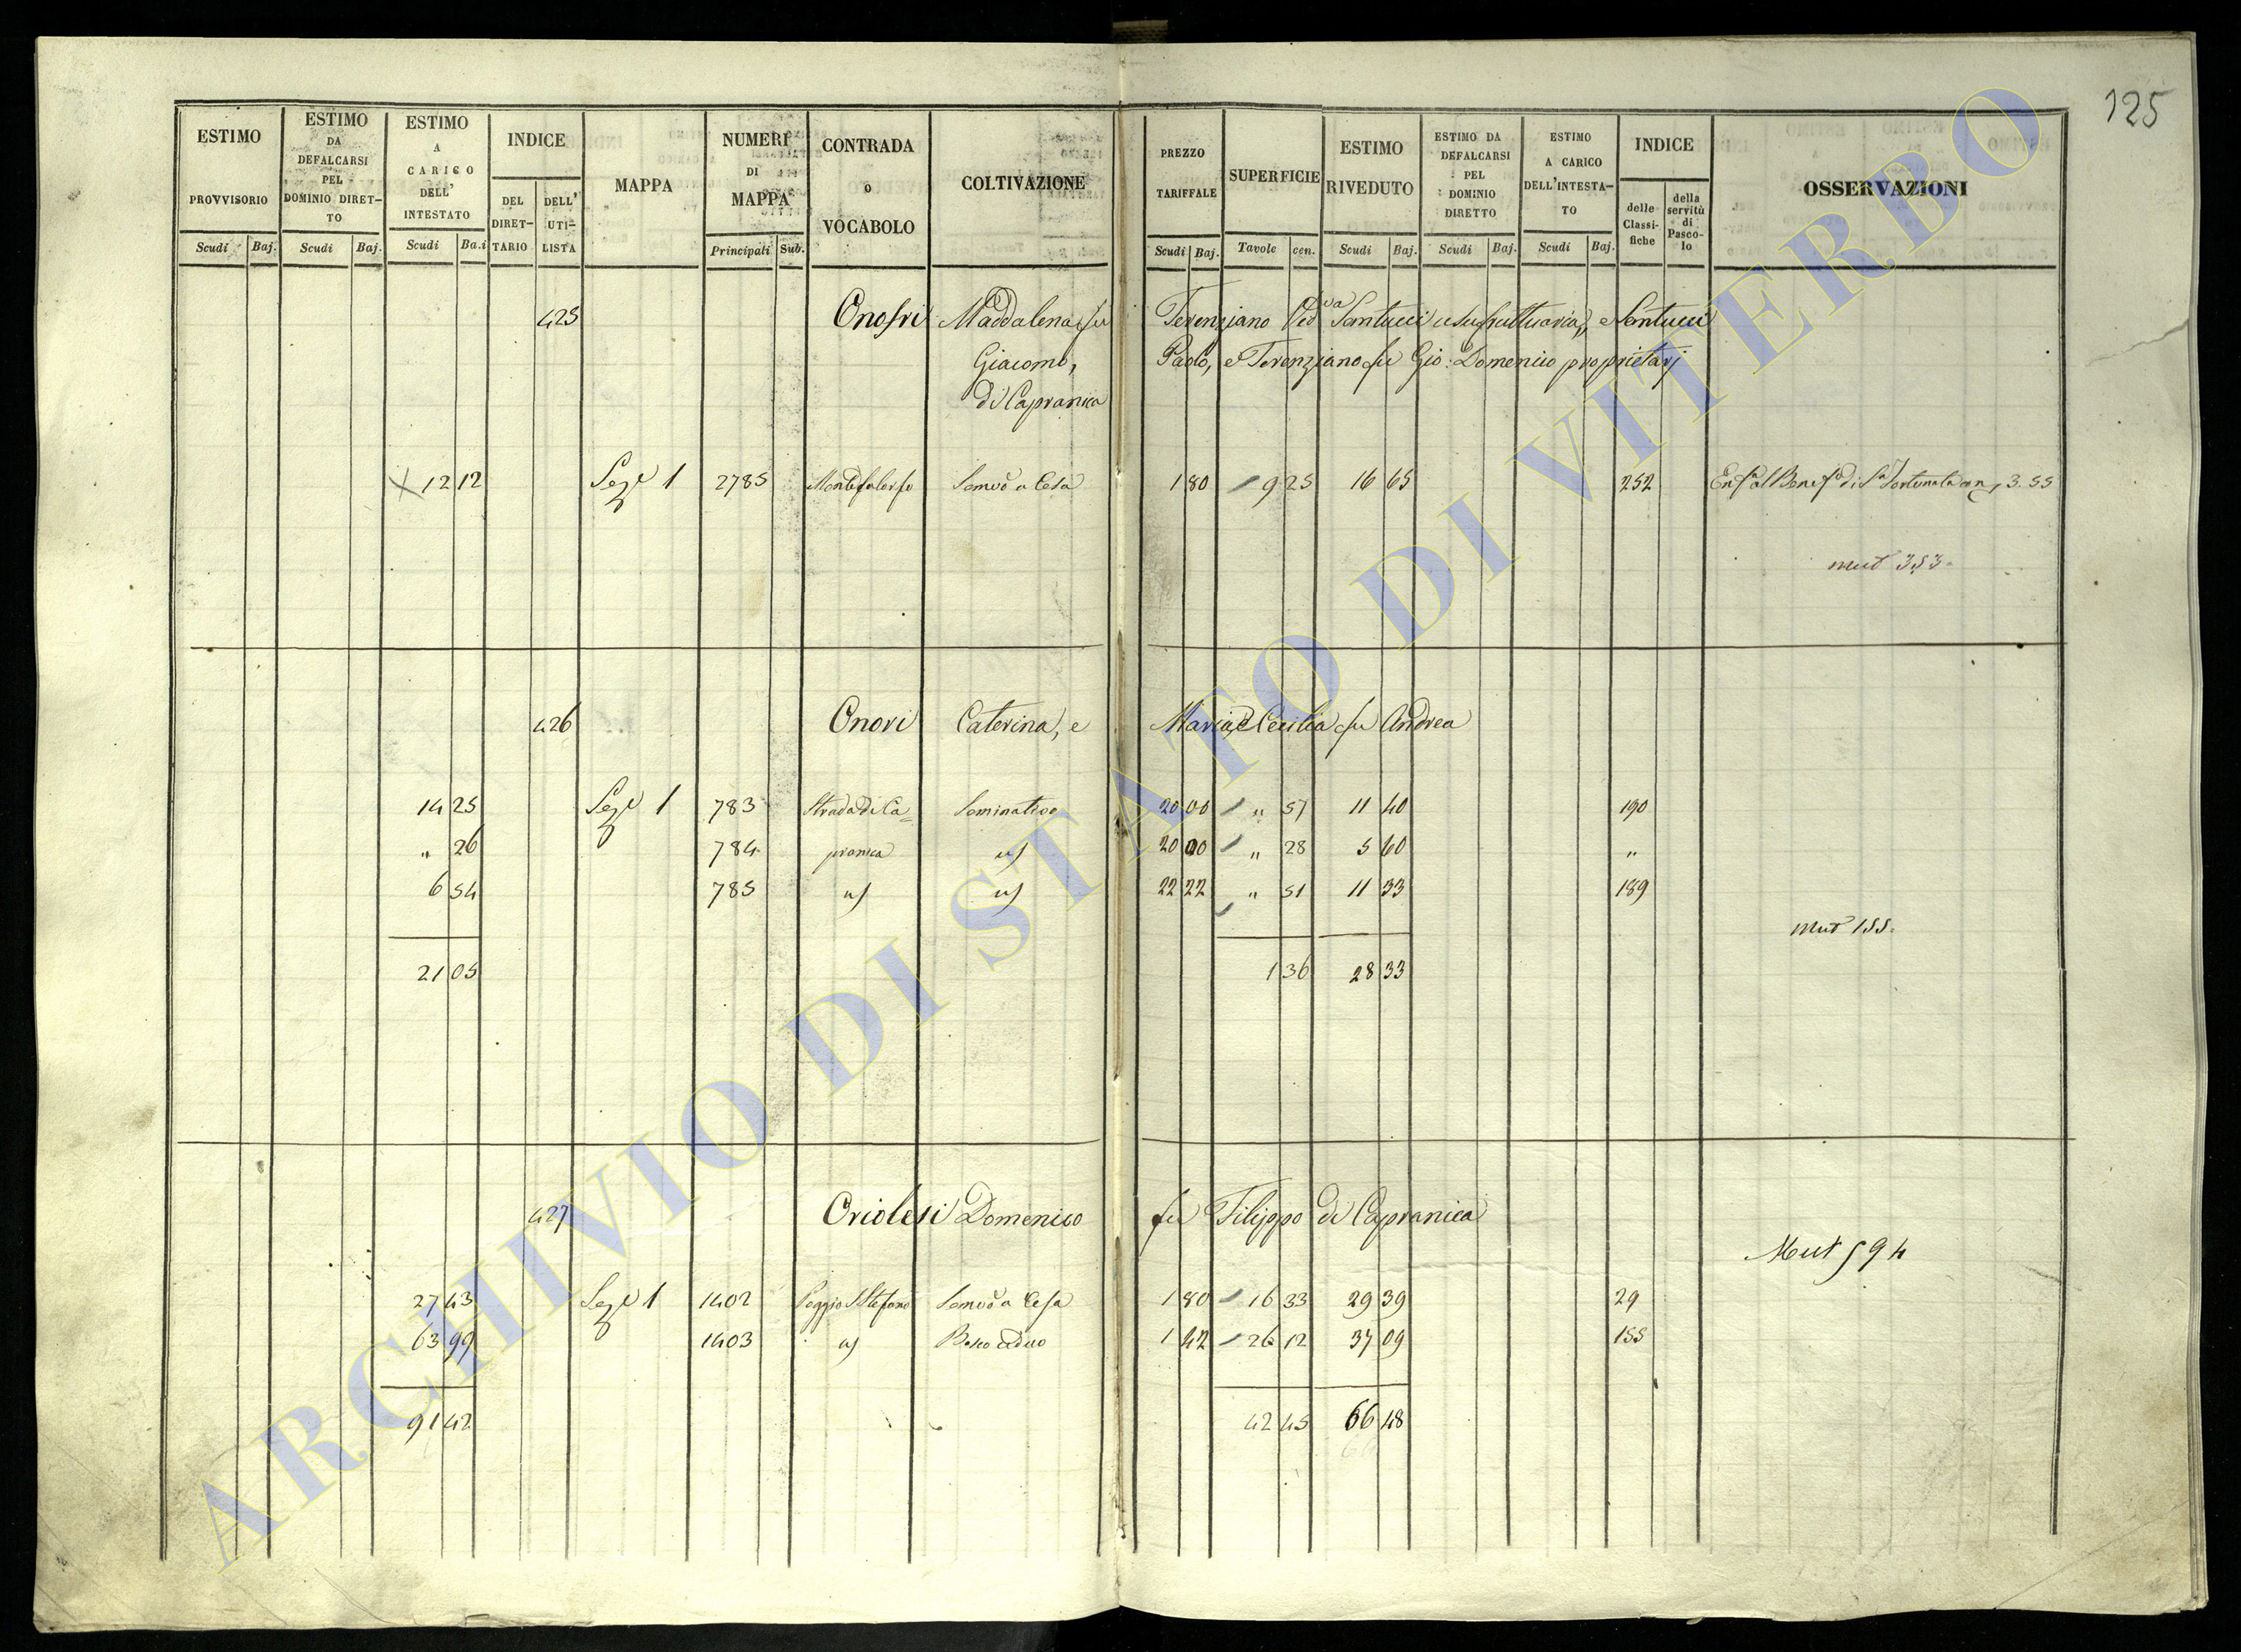 125
ESTIMO PROVVISORIO | ESTIMO DA DEFALCARSI PEL DOMINIO DIRET-TO | ESTIMO A CARICO DELL' INTESTATO | INDICE | MAPPA | NUMERI DI MAPPA | CONTRADA O VOCABOLO | COLTIVAZIONE | PREZZO TARIFFALE | SUPERFICIE | ESTIMO RIVEDUTO | ESTIMO DA DEFALCARSI PEL DOMINIO DIRETTO | ESTIMO A CARICO DELL'INTESTA-TO | INDICE | OSSERVAZIONI
DEL DIRET-TARIO | DELL' UTI-LISTA | delle Classi-fiche | della servitù di Pasco-lo
Scudi | Baj. | Scudi | Baj. | Scudi | Ba.i | Principali | Sub. | Scudi | Baj. | Tavole | cen. | Scudi | Baj. | Scudi | Baj. | Scudi | Baj.
425 Onofri Maddalena fu Terenziano Ved.va Santucci usufruttuaria, e Santucci
Giacomo, Paolo, e Terenziano fu Gio: Domenico proprietarj
di Capranica
12 12 Sez.e 1 2785 Sem.vo a Cesa 1 80 9 25 16 65 252 Enf.a al Benef.o di S.a Fortunata 3.55
mut 353.
426 Onori Caterina, e Maria, e Cecilia fu Andrea
14 25 Sez.e 1 783 Strada di Ca= Seminativo 20 00 " 57 11 40 190
" 26 784 pranica u/ 20 00 " 28 5 60 "
6 54 785 u/ u/ 22 22 " 51 11 33 189
mut 155.
21 05 1 36 28 33
427 Oriolesi Domenico fu Filippo di Capranica
Mut 594
27 43 Sez.e 1 1402 Poggio S. Stefano Sem.vo a Cesa 1 80 16 33 29 39 29
63 99 1403 u/ Bosco ceduo 1 42 26 12 37 09 155
91 42 42 45 66 48
ARCHIVIO DI STATO DI VITERBO